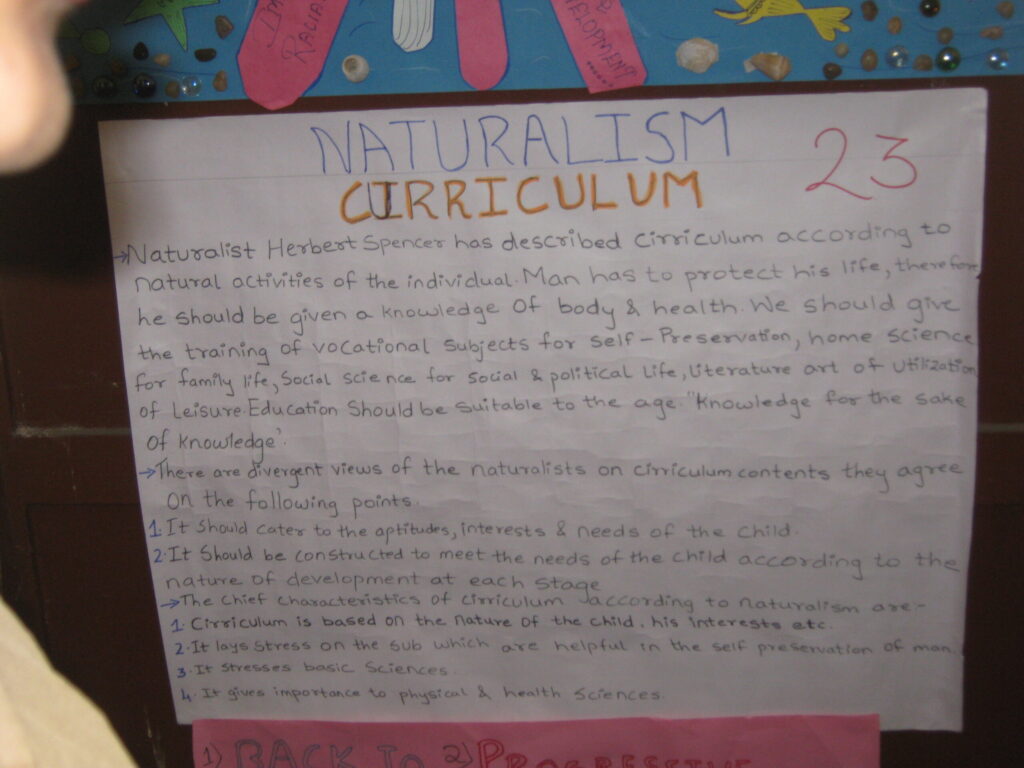 RACIAL
DEVELOPMENT
NATURALISM
23
CURRICULUM
→Naturalist Herbert Spencer has described Cirriculum according to
natural activities of the individual. Man has to protect his life, therefore
he should be given a knowledge of body & health. We should give
the training of vocational subjects for self-Preservation, home science
for family life, Social science for social & political life, literature art of utilization
of leisure. Education Should be suitable to the age. "Knowledge for the sake
of knowledge'.
→There are divergent views of the naturalists on cirriculum contents they agree
on the following points.
1. It Should cater to the aptitudes, interests & needs of the child.
2. It Should be constructed to meet the needs of the child according to the
nature of development at each stage
→The chief characteristics of cirriculum according to naturalism are:-
1. Cirriculum is based on the nature of the child, his interests etc.
2. It lays stress on the sub which are helpful in the self preservation of man.
3. It stresses basic Sciences.
4. It gives importance to physical & health Sciences.
1) BACK To 2) PROGRESSIVE